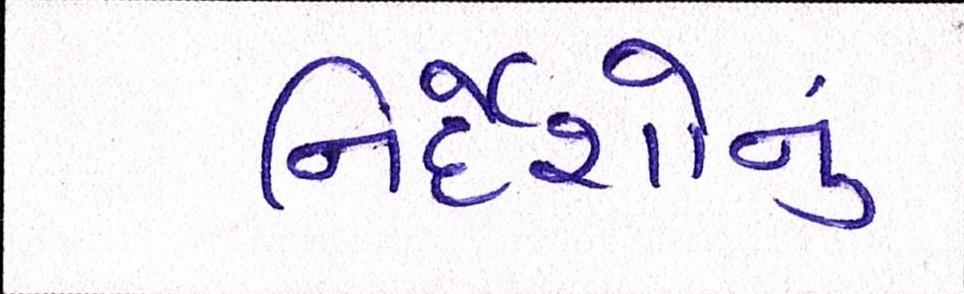 નિર્દેશોનું